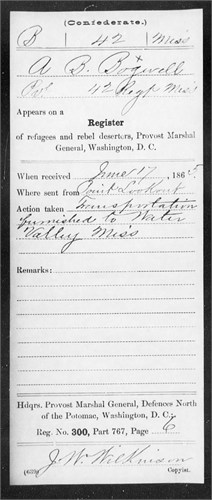 (Confederate.)
B 42 Miss
A B. Bogwell
Pvt 42 Regt Miss
Appears on a
Register
of refugees and rebel deserters, Provost Marshal
General, Washington, D. C.
When received June 17, 1865
Where sent from Point Lookout
Action taken Transportation
furnished to Water
Valley Miss
Remarks:
Hdqrs. Provost Marshal General, Defences North
of the Potomac, Washington, D. C.:
Reg. No. 300, Part 767, Page 6
J. W. Wilkinson
(639) Copyist.